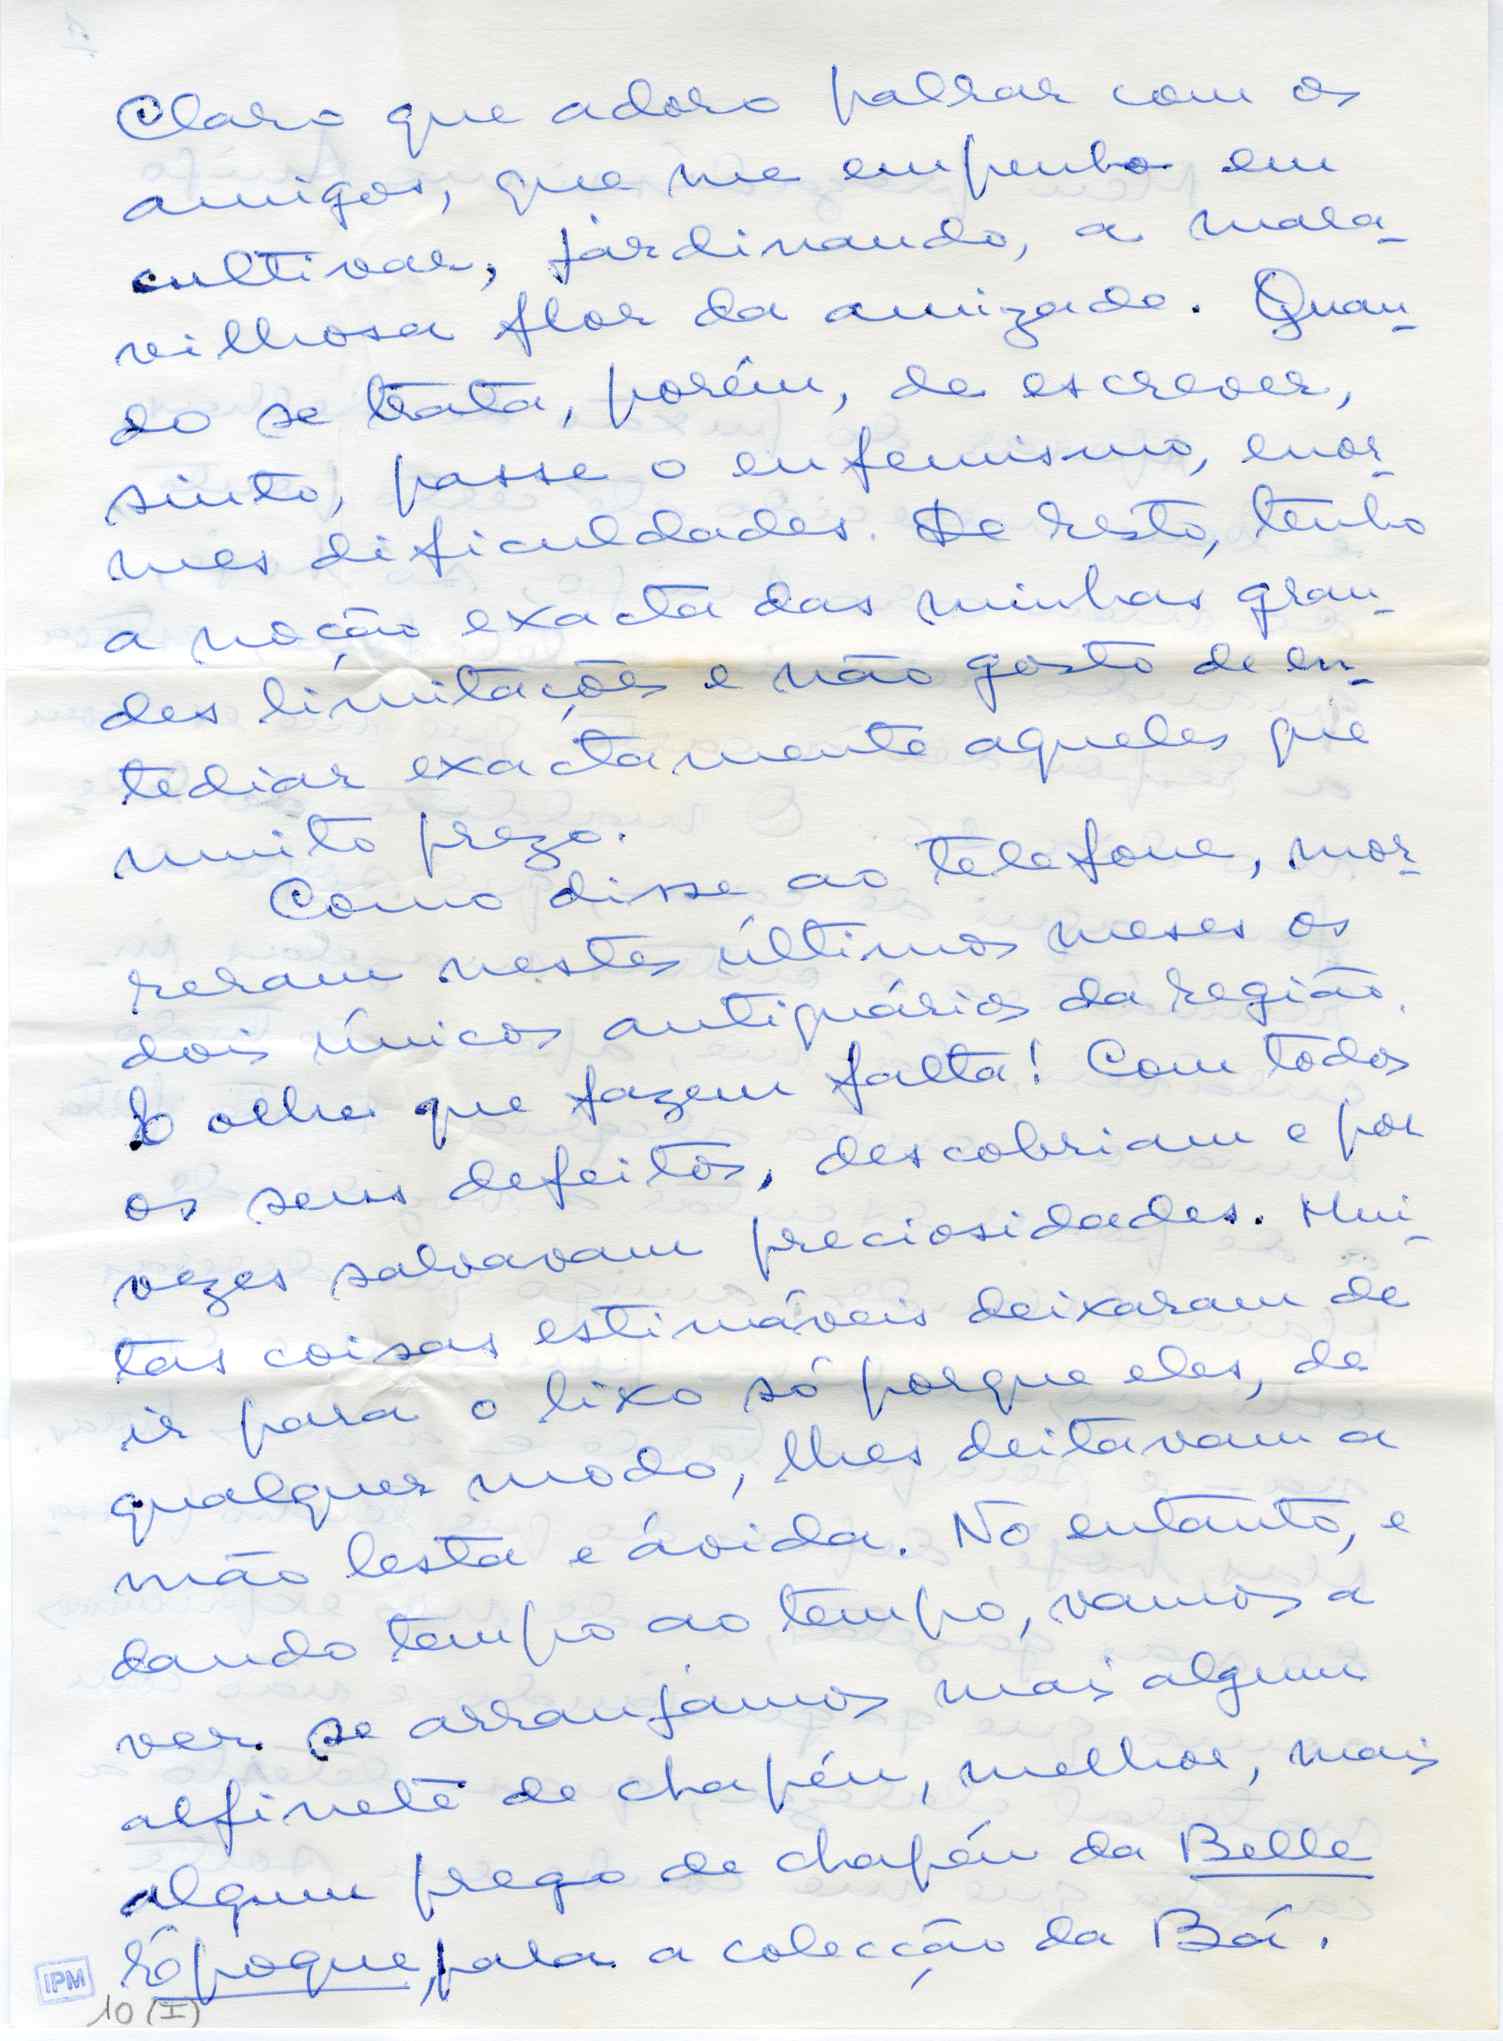 Claro que adoro palrar com os
amigos, que me empenho em
cultivar, jardinando, a mara-
vilhosa flor da amizade. Quan-
do se trata, porém, de escrever,
sinto, passe o eufemismo, enor-
mes dificuldades. De resto, tenho
a noção exacta das minhas gran-
des limitações e não gosto de en-
tediar exactamente aqueles que
muito prezo.
Como disse ao telefone, mor-
reram nestes últimos meses os
dois únicos antiquários da região.
E olhe que fazem falta! Com todos
os seus defeitos, descobriam e por
vezes salvavam preciosidades. Mui-
tas coisas estimáveis deixaram de
ir para o lixo só porque eles, de
qualquer modo, lhes deitavam a
mão lesta e ávida. No entanto, e
dando tempo ao tempo, vamos a
ver se arranjamos mais algum
alfinete de chapéu, melhor, mais
algum prego de chapéu da Belle
Époque, para a colecção da Bá.
IPM
10 (I)